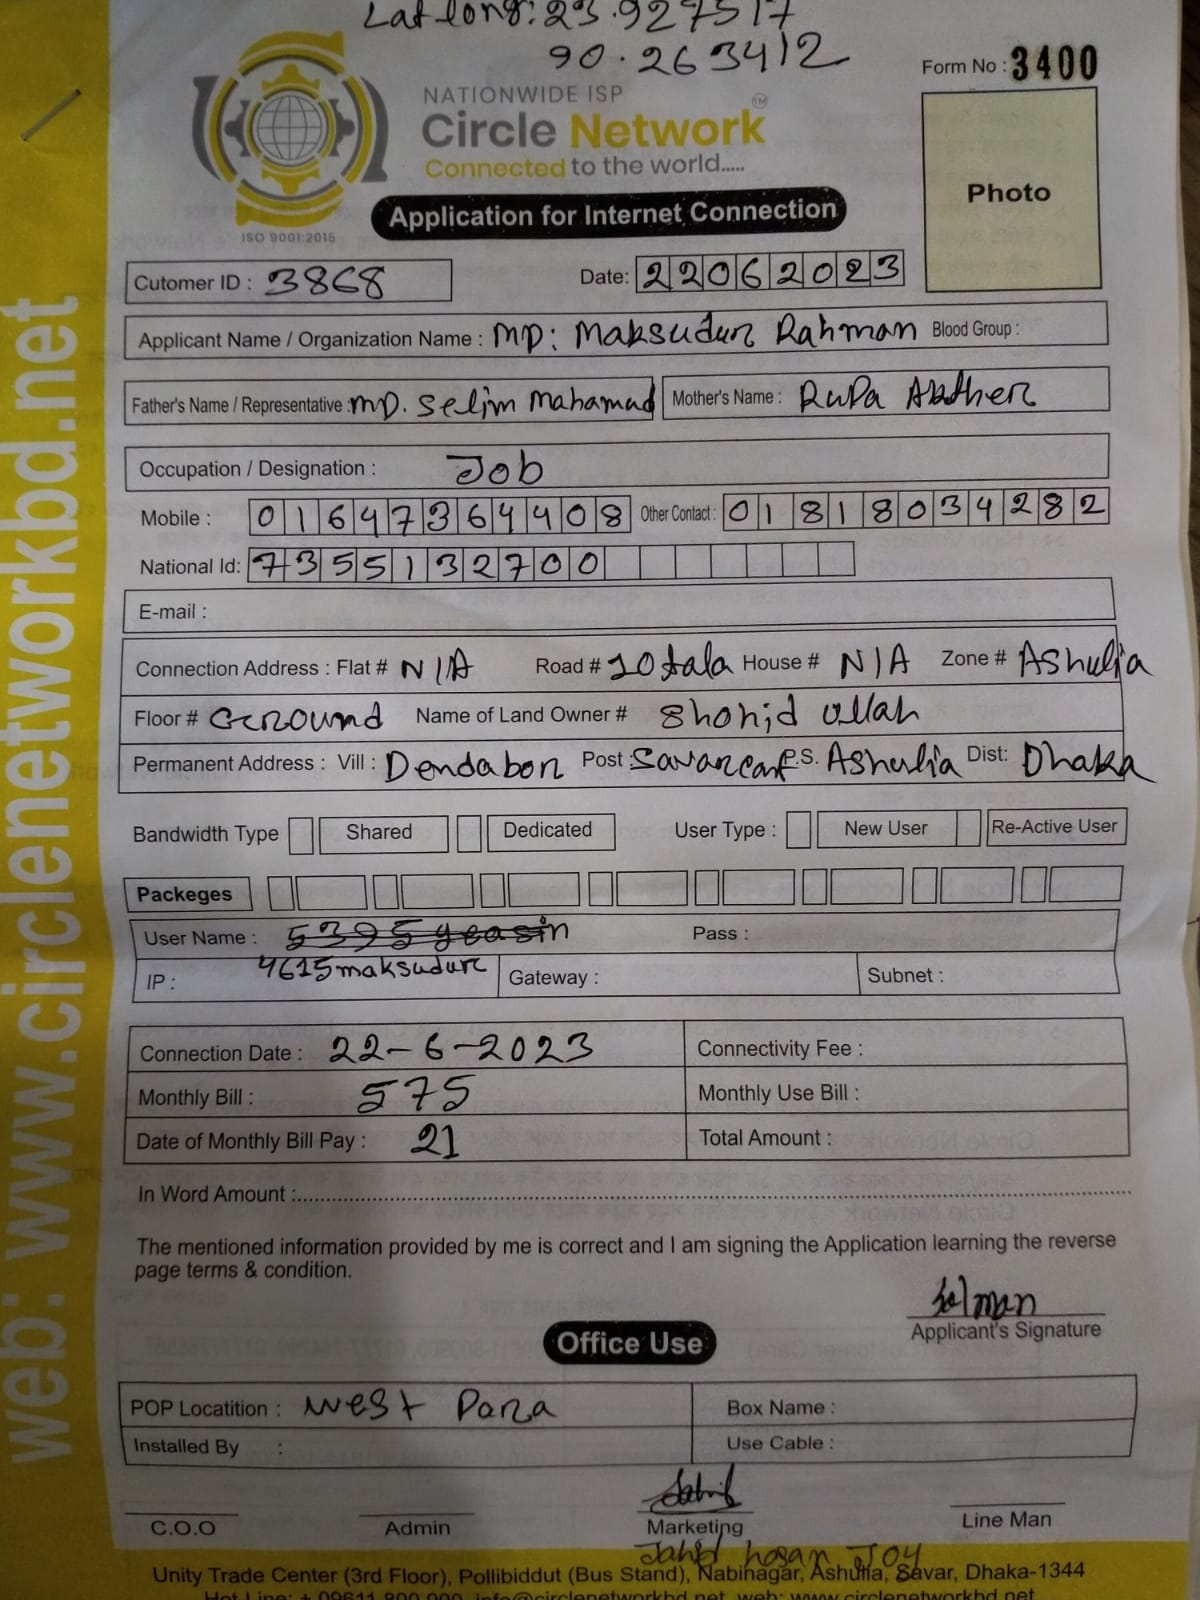 Lat long: 23.927517
90.263412
Form No : 3400
NATIONWIDE ISP
Circle Network TM
Connected to the world.....
Photo
ISO 9001:2015
Application for Internet Connection
Cutomer ID : 3868 Date: 22062023
Applicant Name / Organization Name : MD: Maksudur Rahman Blood Group :
Father's Name / Representative : MD. Selim Mahamud Mother's Name : RuPa Akther
Occupation / Designation : Job
Mobile : 01647364408 Other Contact : 01818034282
National Id: 7355132700
E-mail :
Connection Address : Flat # N/A Road # 10tala House # N/A Zone # Ashulia
Floor # Ground Name of Land Owner # Shohid ullah
Permanent Address : Vill : Dendabor Post : Savar cant P.S. Ashulia Dist: Dhaka
Bandwidth Type Shared Dedicated User Type : New User Re-Active User
Packeges
User Name : 5395yeasin Pass :
4615maksudur
IP : Gateway : Subnet :
Connection Date : 22-6-2023 Connectivity Fee :
Monthly Bill : 575 Monthly Use Bill :
Date of Monthly Bill Pay : 21 Total Amount :
In Word Amount :
The mentioned information provided by me is correct and I am signing the Application learning the reverse
page terms & condition.
Salman
Applicant's Signature
Office Use
POP Locatition : West Para Box Name :
Installed By : Use Cable :
C.O.O Admin Marketing Line Man
Jahid hosan JOY
Unity Trade Center (3rd Floor), Pollibiddut (Bus Stand), Nabinagar, Ashulia, Savar, Dhaka-1344
Hot Line: + 09611 800 900, info@circlenetworkbd.net, web: www.circlenetworkbd.net
web: www.circlenetworkbd.net